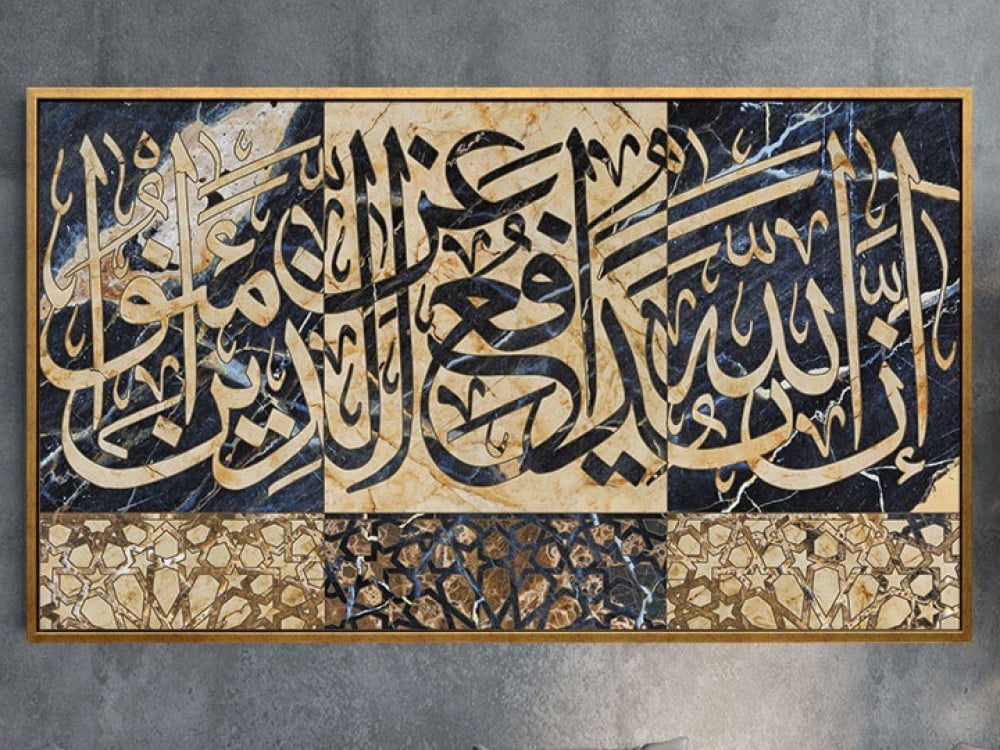 إِنَّ اللَّهَ يُدَافِعُ عَنِ الَّذِينَ ءَامَنُوا